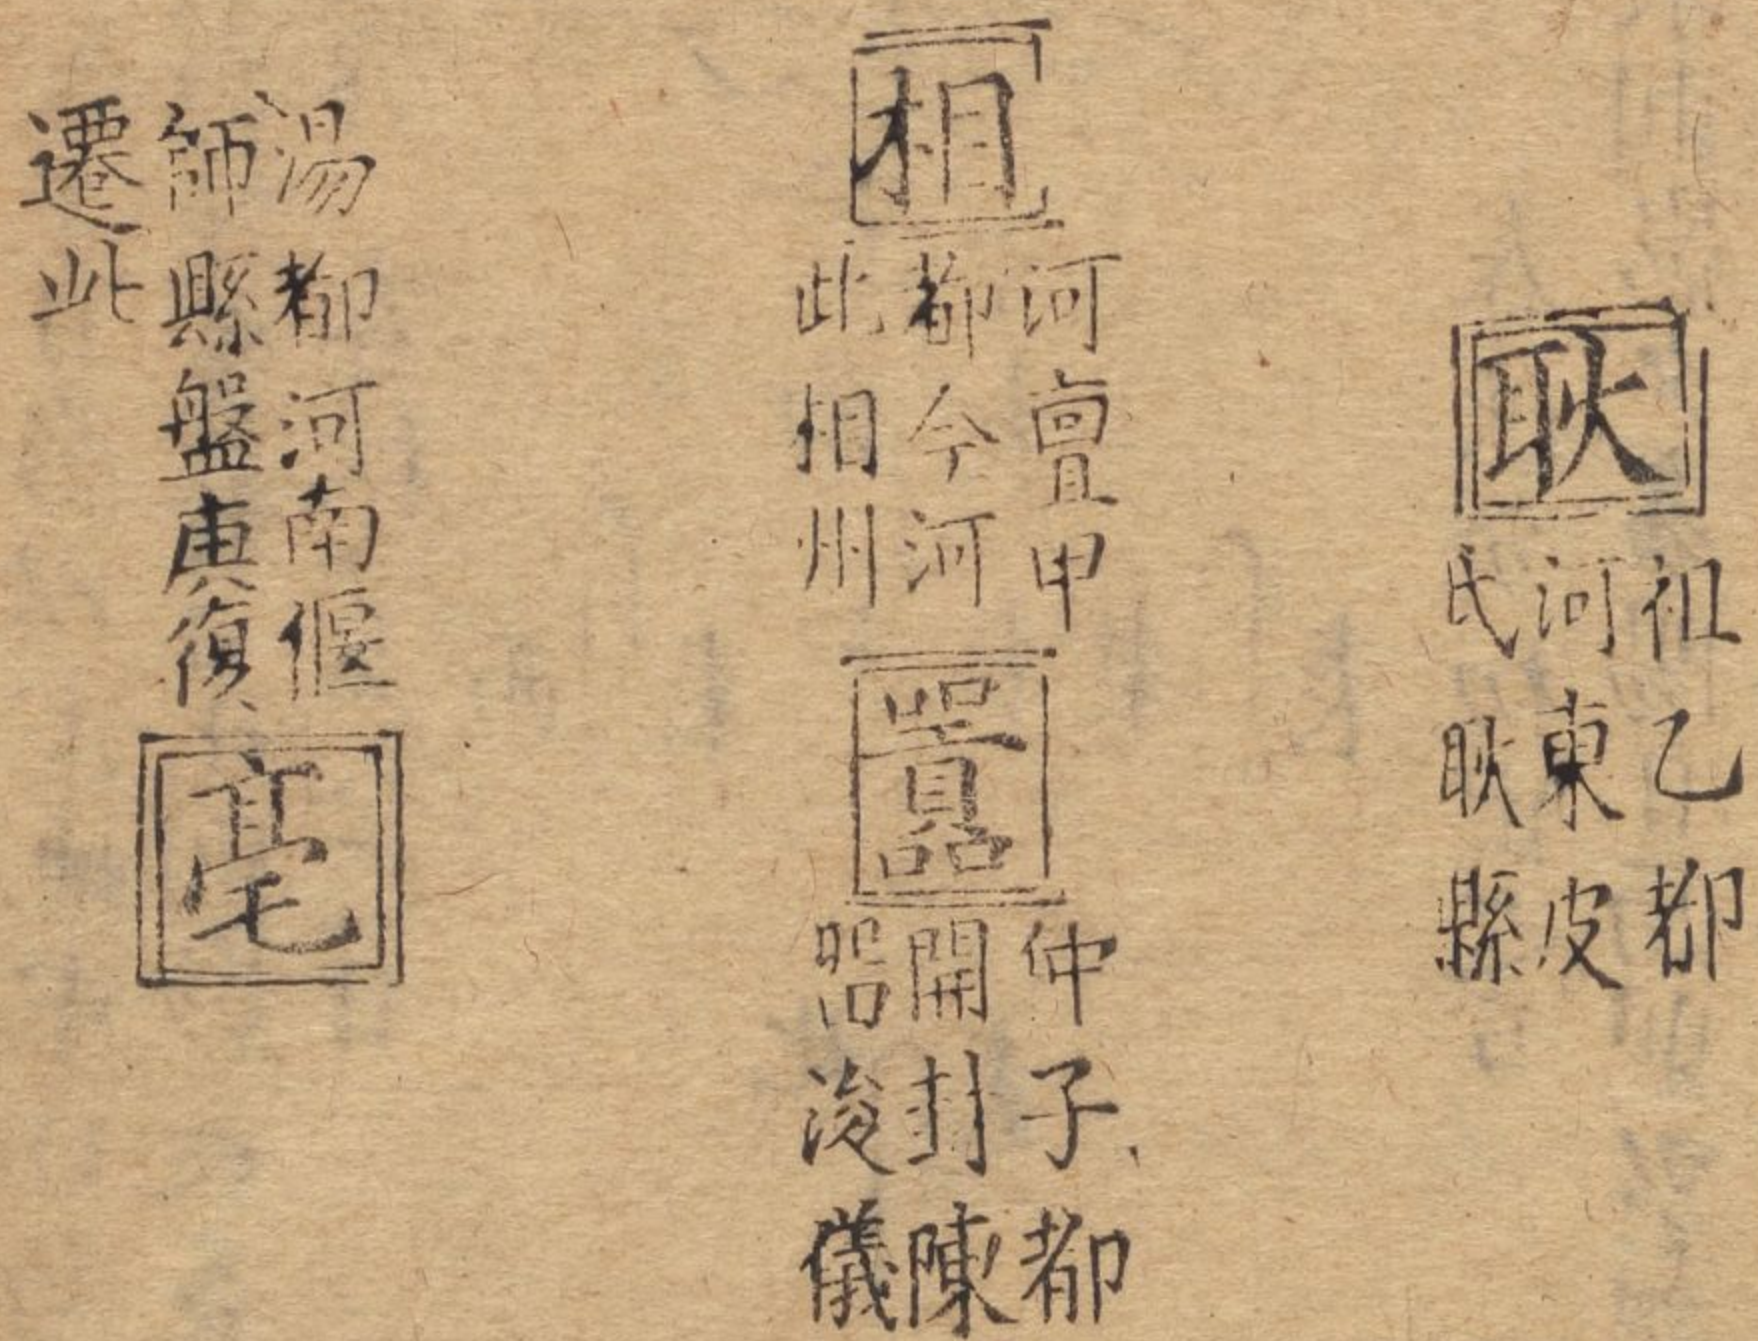 耿
祖乙都
河東皮
氏耿縣
相
河亶甲
都今河
此相州
囂
仲子都
開封陳
㗊浚儀
湯都河南偃
師縣盤庚復
遷此
亳